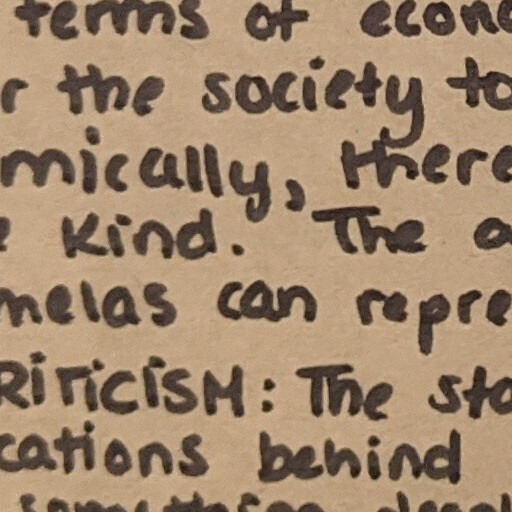 terms of econo
r the society to
mically, there
e kind. The a
melas can repre
RITICISM: The sto
cations behind